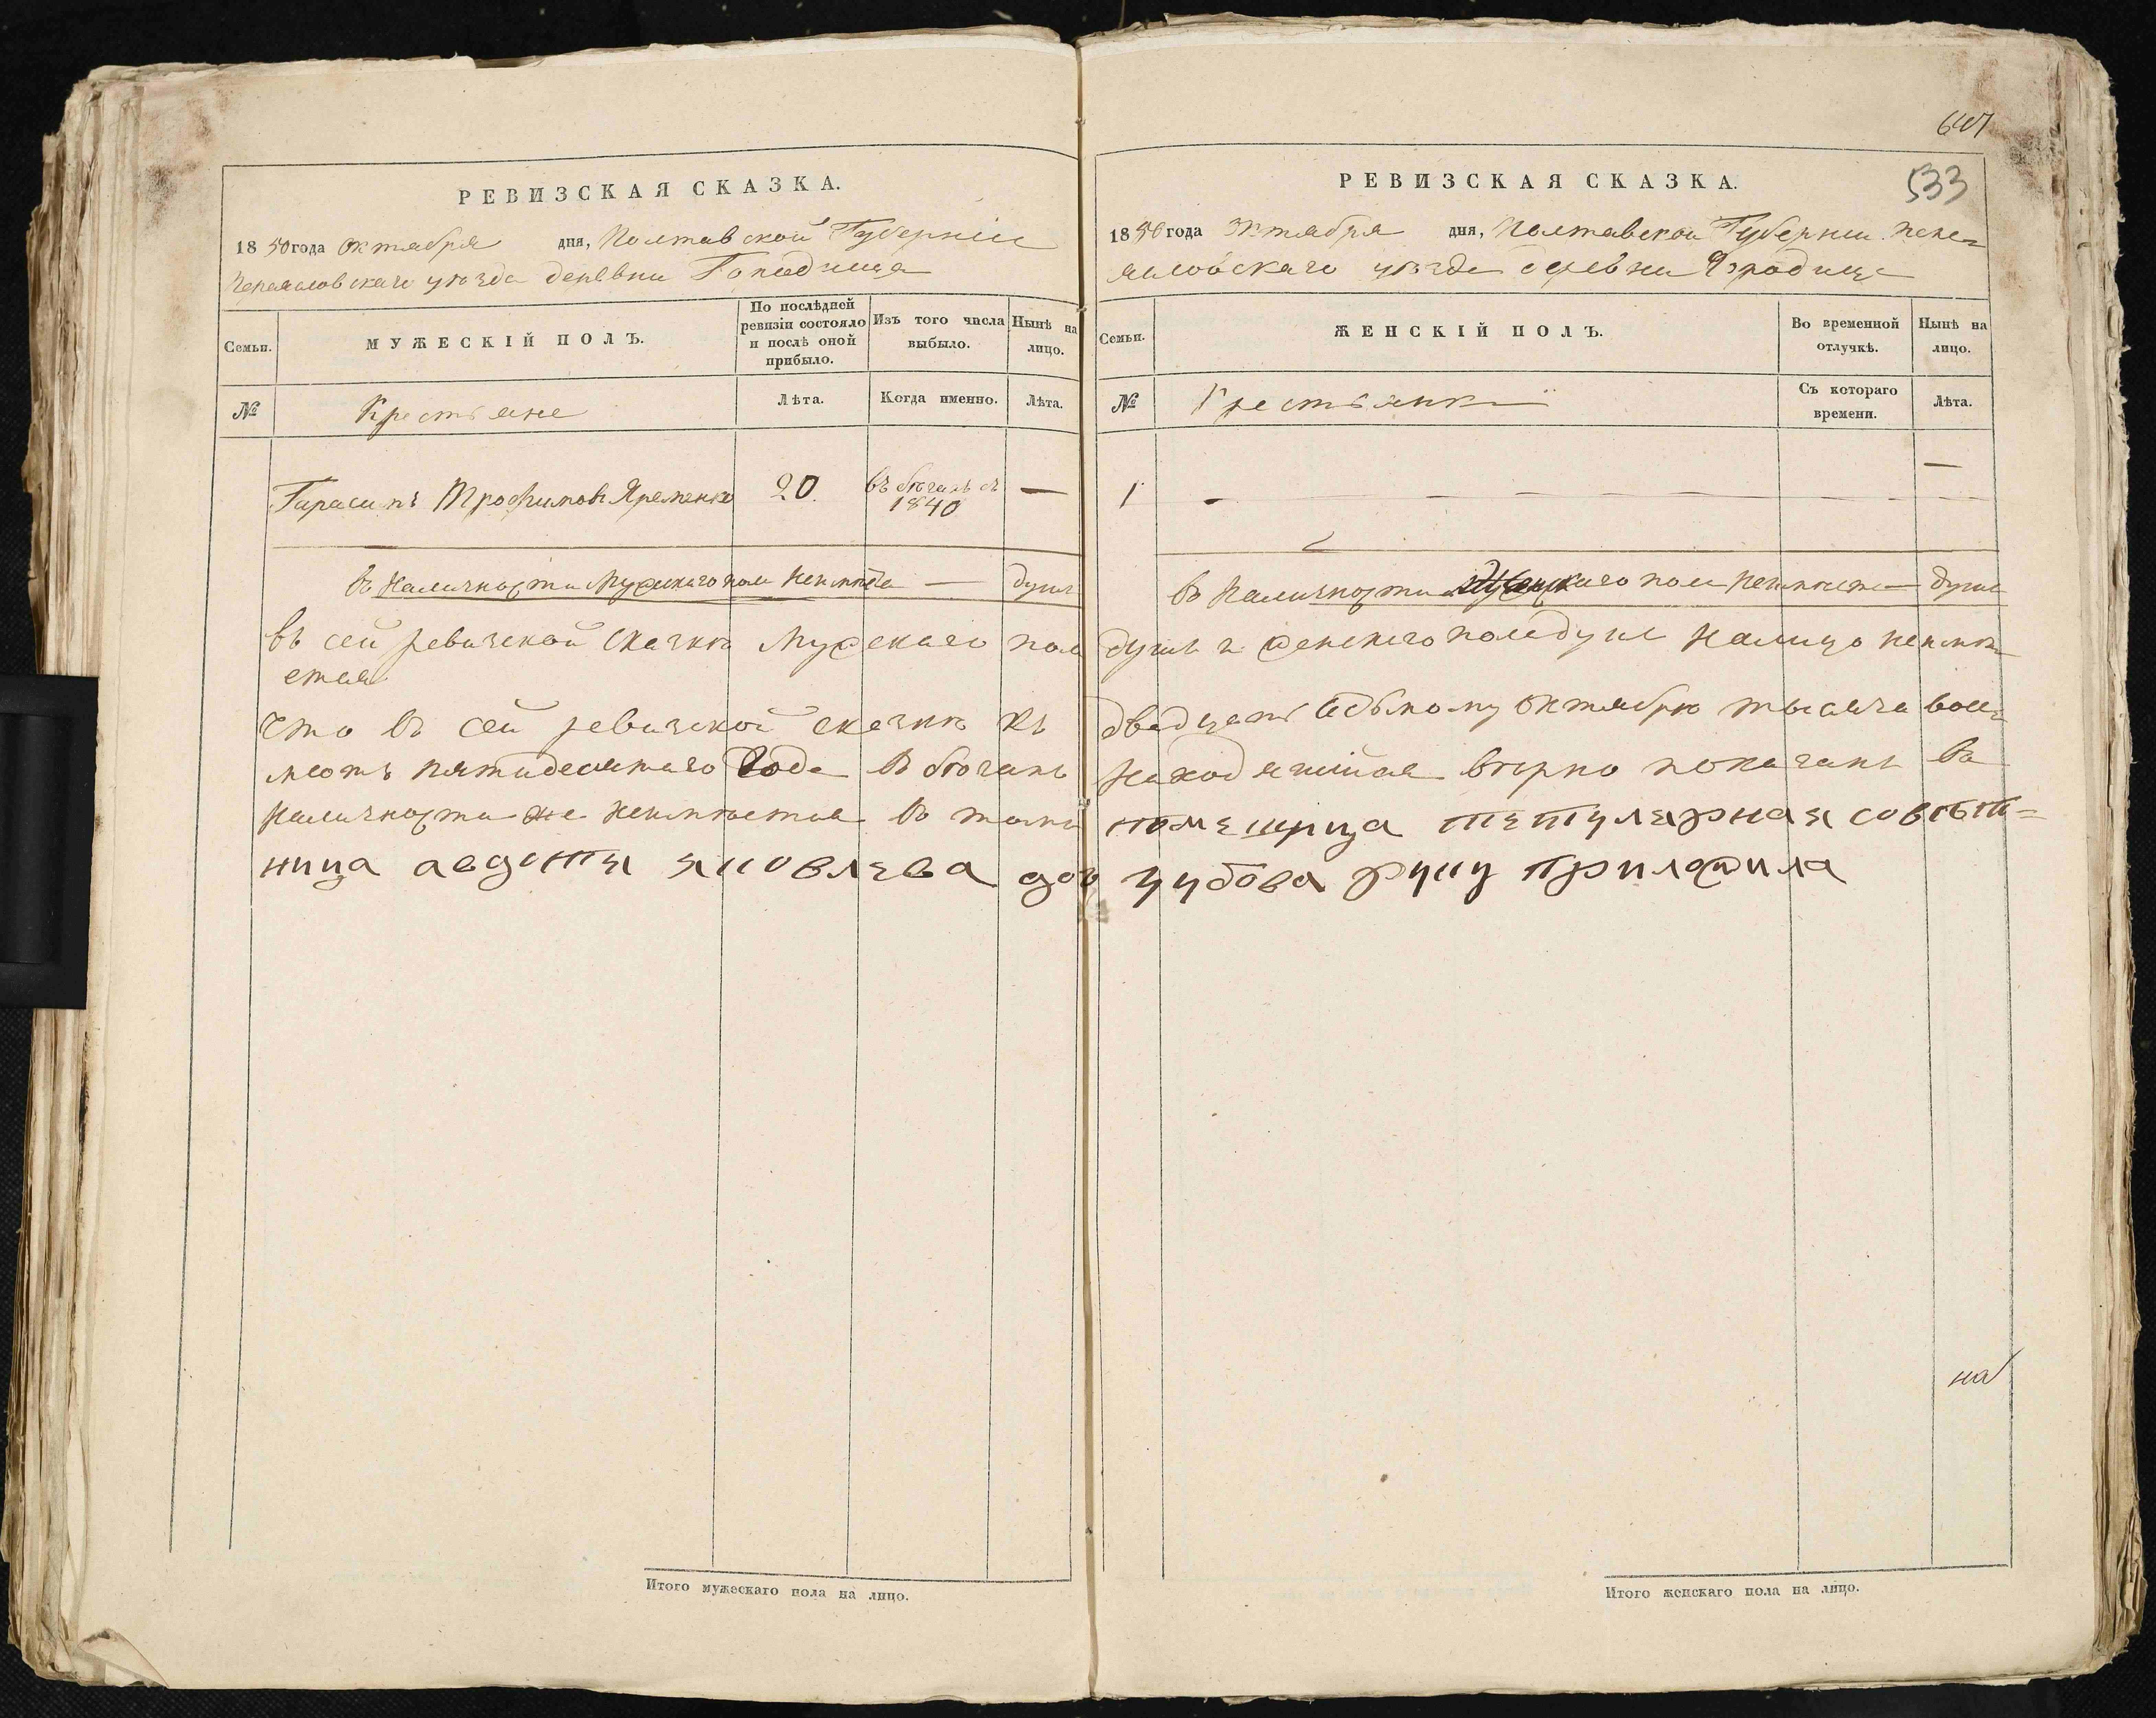 647
РЕВИЗСКАЯ СКАЗКА.
1850 года Октября дня, Полтавской Губерніи
Переясловскаго уѣзда деревни Городища
Семьи.
МУЖЕСКІЙ ПОЛЪ.
По послѣдней ревизіи состояло и послѣ оной прибыло.
Изъ того числа выбыло.
Нынѣ на лицо.
№
Крестьяне
Лѣта.
Когда именно.
Лѣта.
Гарасимъ Трофимовъ Яременко 20. въ бѣгахъ съ 1840 —
въ Наличности Мужескаго пола душъ
въ сей ревизской сказкѣ Мужескаго пола
ется
Что въ сей ревизской сказкѣ къ
мсотъ пятидесятаго Года в бѣгахъ
Наличности же неимѣется в томъ
ница авдотя яковлева доч
Итого мужескаго пола на лицо.
РЕВИЗСКАЯ СКАЗКА.
533
1850 года Октября дня, Полтавской Губерніи Пере=
ясловскаго уѣзда деревни Городища
Семьи.
ЖЕНСКІЙ ПОЛЪ.
Во временной отлучкѣ.
Нынѣ на лицо.
№
Крестьянки
Съ котораго времени.
Лѣта.
1 — — — — — —
в Наличности Женскаго пола неимѣется — душъ
душъ и женскаго пола душъ Налицо неимѣ
двадцать седьмому Октября тысяча вось=
Находящійся вѣрно показанъ въ
помещица тетулярная совѣт=
зубова руку приложила
на
Итого женскаго пола на лицо.